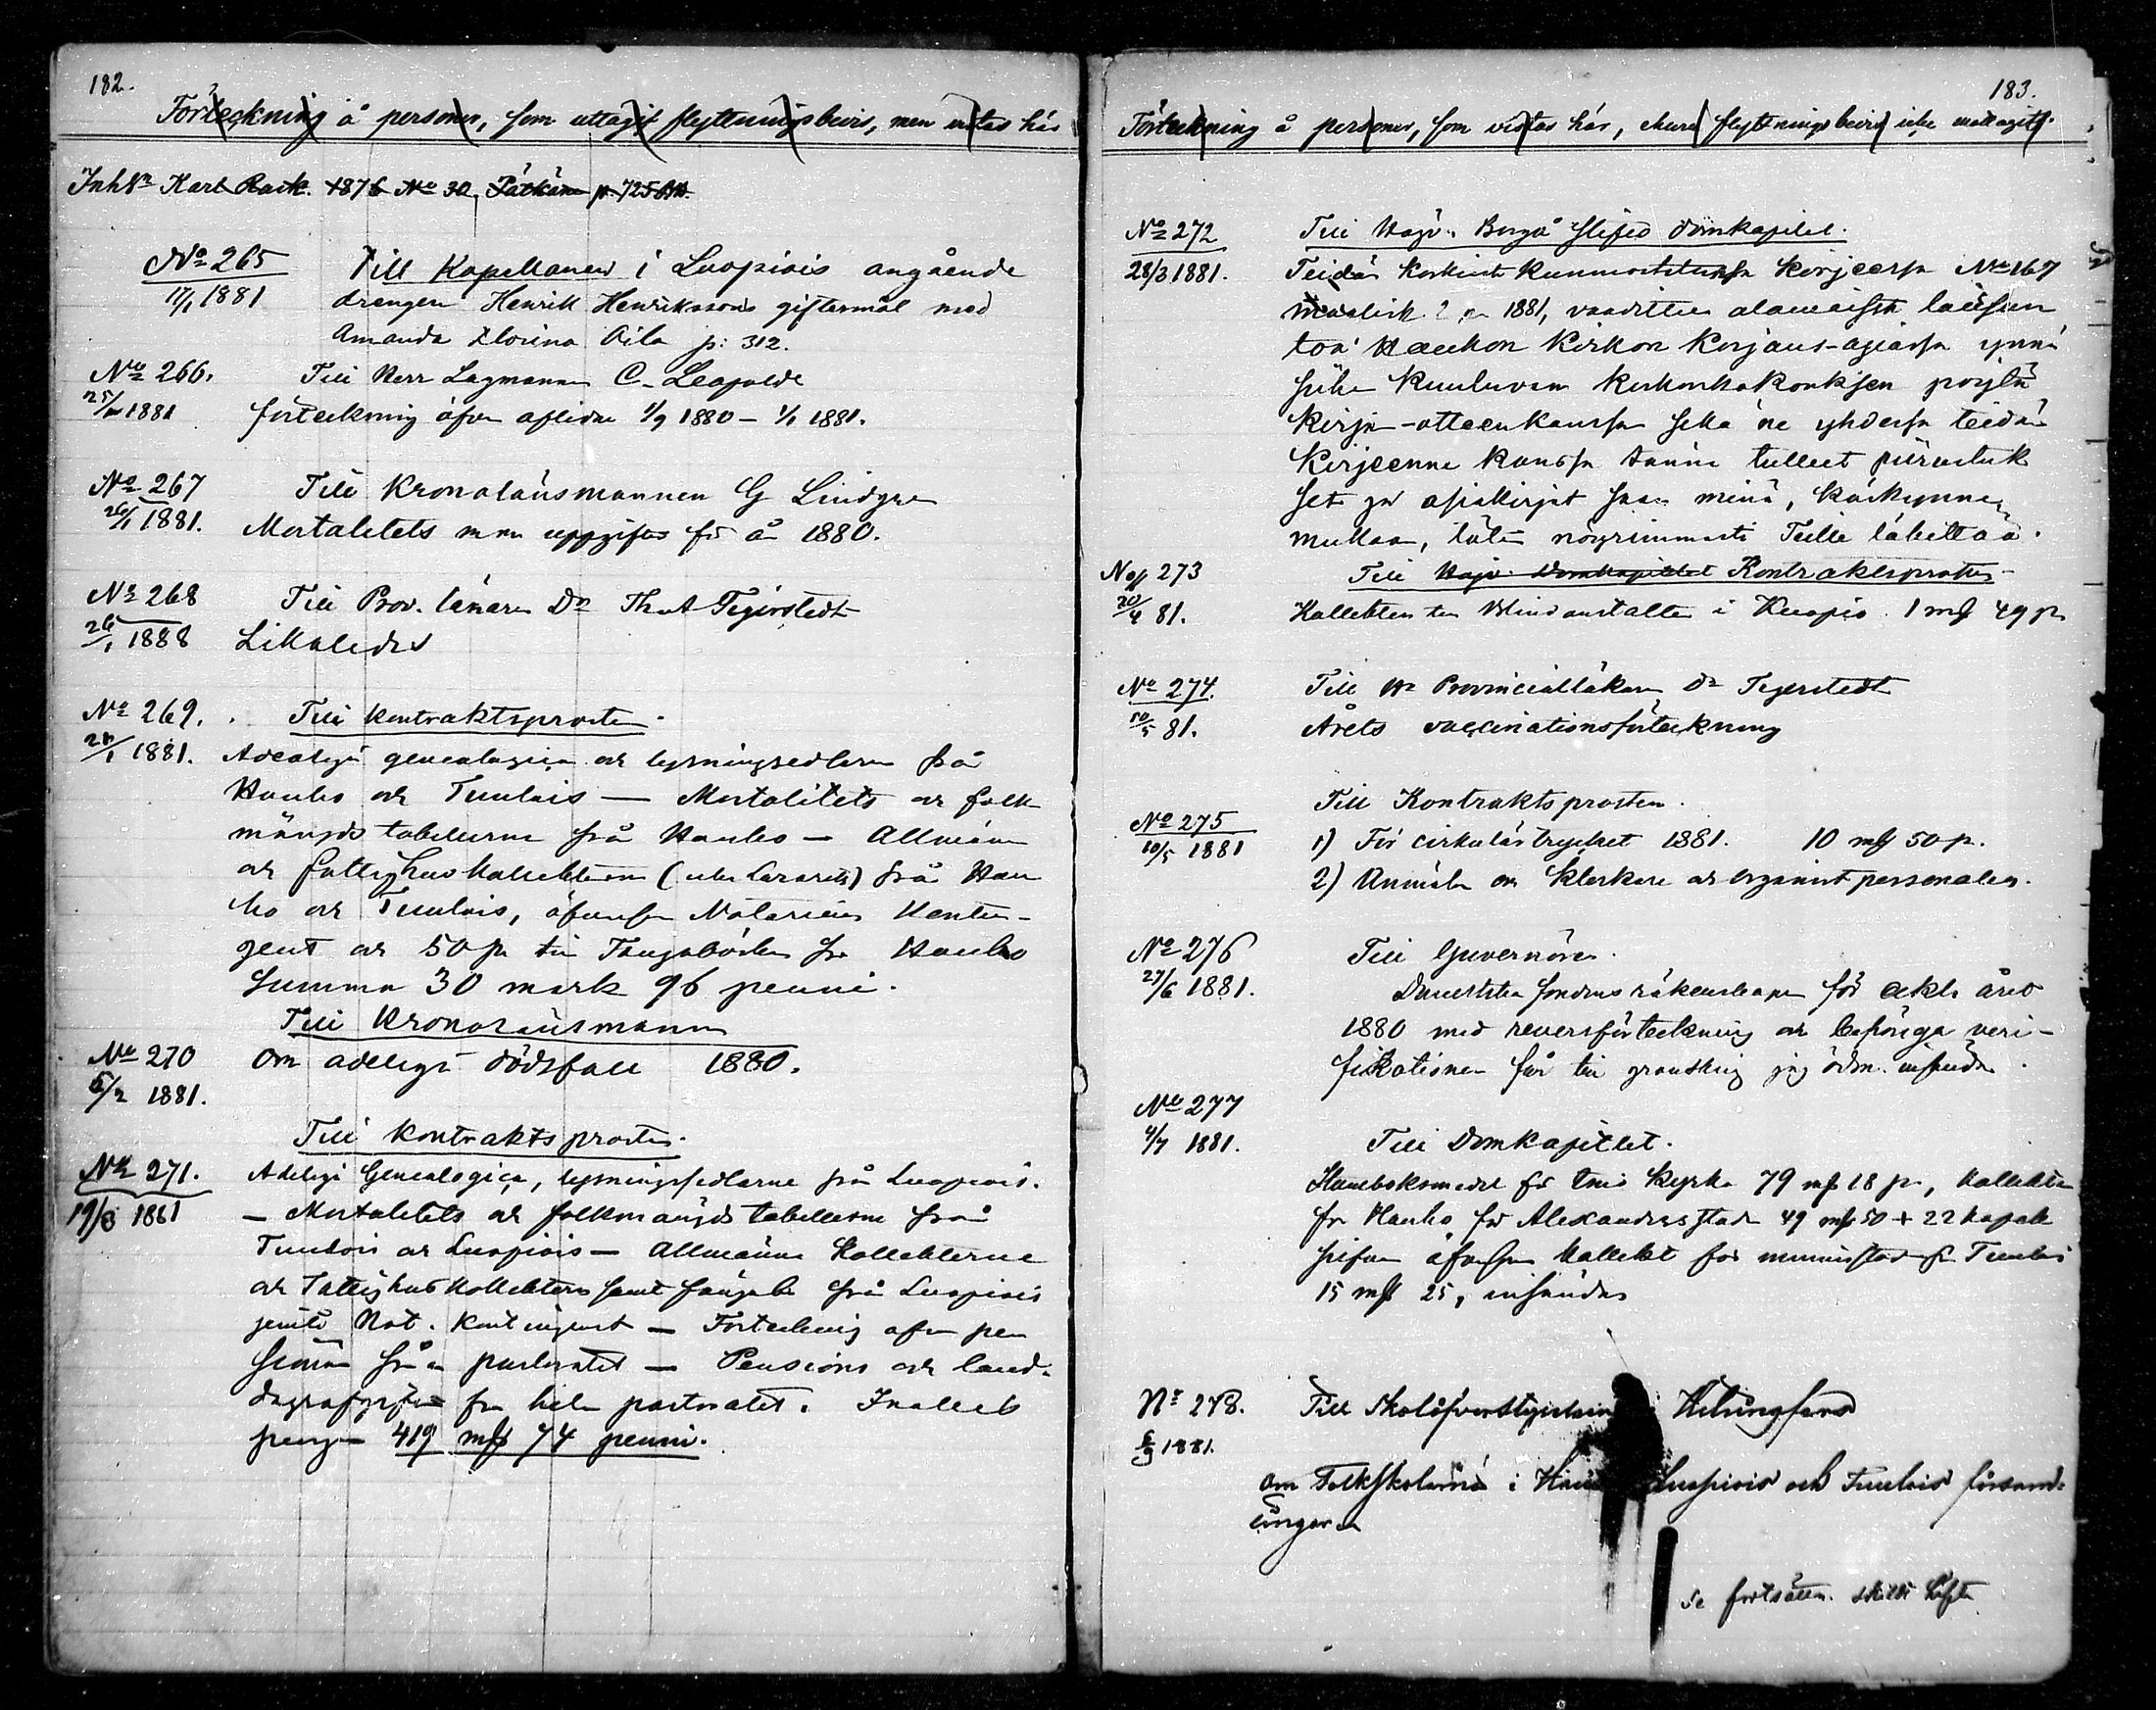 182.
Förteckning å personer, som uttagit flyttningsbevis, men vistas här
Inhs Karl Rask. 1876 No 30, Pätkäne p. 725
No 265 Till Kapellanen i Luopiois angående
17/1 1881 drengen Henrik Henrikssons giftermål med
Amanda Florina Oila p: 312.
No 266. Till Herr Lagmannen C. Leopold
25/ 1881 förteckning öfver aflidne 1/9 1880 - 1/1 1881.
No 267 Till Kronolänsmannen G Lindgren
26/1 1881. Mortalitets m m uppgifter för år 1880.
No 268 Till Prov. läkaren Dr Tigerstedt
26/1 1888 Likaledes
No 269. Till Kontraktsprosten.
28/1 1881. Adeliga genealogica och lysningsedlarne från
Hauho och Tuulois — Mortalitets och folk
mängds tabellerne från Hauho — Allmänna
och fattighus kollekterna (utom Lazarets) från Hau
ho och Tuulois, äfvensom Notariens Kontin-
gent och 50 pi till Fångabördan fr Hauho
Summa 30 mark 96 penni.
Till Kronolänsmannen
No 270 Om adeliga dödsfall 1880.
5/2 1881.
Till Kontraktsprosten.
No 271. Adeliga Genealogica, lysningssedlarne från Luopiois.
19/3 1881 — Mortalitets och folkmängds tabellerne från
Tuulois och Luopiois — Allmänna Kollekterne
och Fattighus kollekten samt fångab från Luopiois
jemte Not. Kontingent — Förteckning öfver pen
sionärer från pastoratet — Pensions och land-
dagsafgifter fr hela pastoratet. Inalles
penger 419 mk 74 penni.
183.
Förteckning å personer, som vistas här, ehuru flyttningsbevis icke mottagits.
No 272 Till Högv. Borgå Stifts Domkapitel.
28/3 1881. Teidän Korkiasti Kunnioitetussa Kirjeessa No 167
2 p 1881, vaadittua alamaista lausun
toa Hauhon Kirkon Korjaus-asiassa ynnä
siihen kuuluvan Kirkonkokouksen pöytä
Kirja-otteen kanssa sekä ne yhdessä teidän
Kirjeenne kanssa tänne tulleet piirustuk
set ja asiakirjat saan minä, käskynne
mukaan, täten nöyrimmästi Teille lähettää.
No 273 Till Högv. Domkapitlet Kontraktsprosten
20/4 81. Kollekten till Blindanstalten i Kuopio. 1 mk 49 pi
No 274. Till Hr Provincialläkaren Dr Tigerstedt
10/5 81. Årets vaccinationsförteckning
Till Kontraktsprosten.
No 275
10/5 1881 1) För cirkulärtrycket 1881. 10 mk 50 p.
2) Anmälan om klockare och organist personalen.
No 276 Till Guvernören.
27/6 1881. fondens räkenskaper för året
1880 med reversförteckning och behöriga veri-
fikationer får till granskning jag ödm. insända.
No 277
4/7 1881. Till Domkapitlet.
Hamboksmedel för kyrka 79 mk 18 pi, Kollekten
fr Hauho för Alexandersstaden 49 mk 50 + 22 kopek
silfver äfvensom Kollekt för fr Tuulois
15 mk 25, insändes
No 278. Till Skolöfverstyrelsen Helsingfors
1881.
Om Folkskolorna i Luopiois och Tuulois försam-
lingar
Se fortsättn. skildt häfte